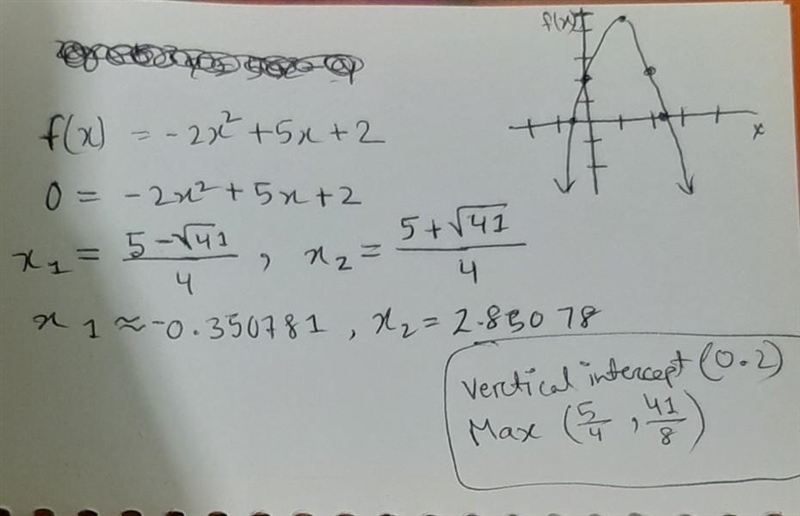 f(x)
x
f(x) = -2x² + 5x + 2
0 = -2x² + 5x + 2
x₁ = (5 - √41)/4 , x₂ = (5 + √41)/4
x₁ ≈ -0.350781 , x₂ = 2.85078
Verctical intercept (0.2)
Max (5/4 , 41/8)